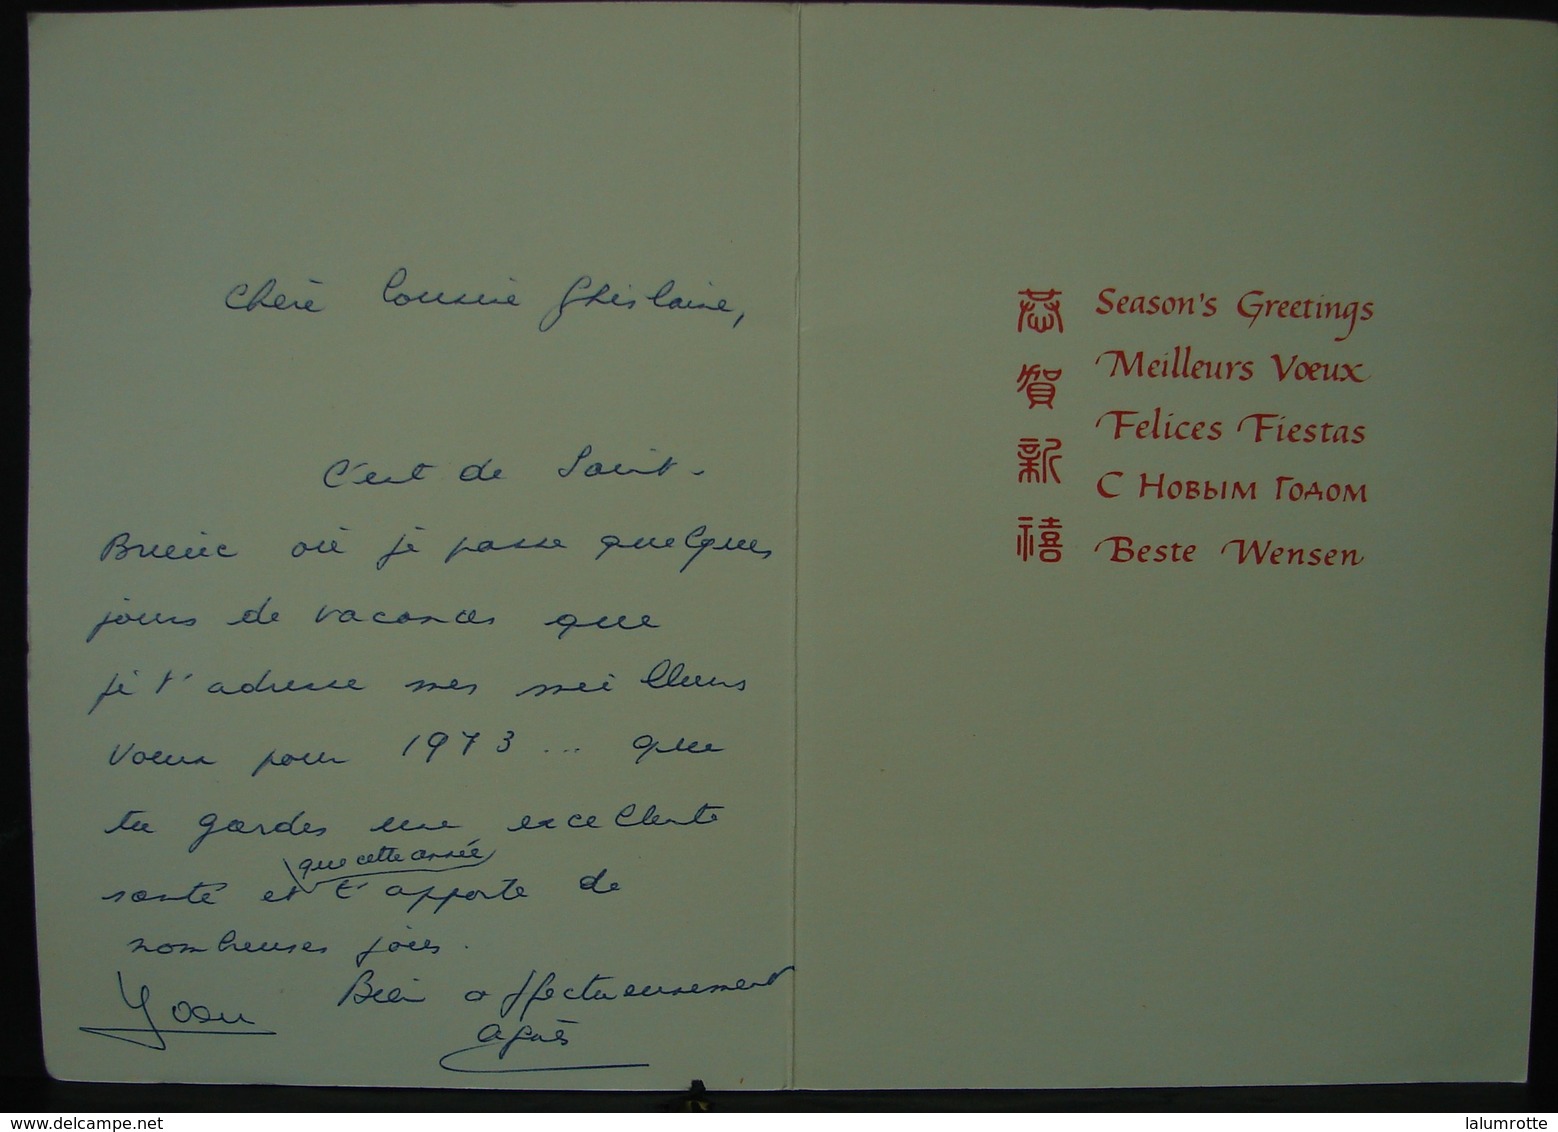 Chère Cousine Ghislaine,
C'est de Saint-
Brieuc où je passe quelques
jours de vacances que
je t'adresse mes meilleurs
voeux pour 1973 ... que
tu gardes une excellente
que cette année
santé et t'apporte de
nombreuses joies.
Bien affectueusement
Yoan
Agnès
恭賀新禧
Season's Greetings
Meilleurs Vœux
Felices Fiestas
С Новым Годом
Beste Wensen
delcampe.net
lalumrotte